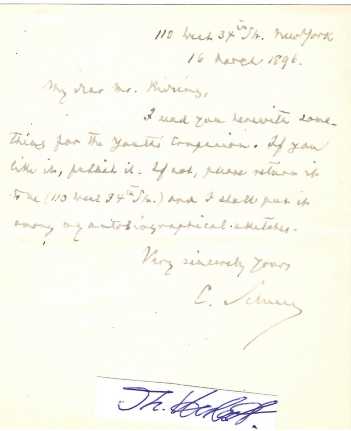 110 West 34th St. New York
16 March 1896.
My dear Mr.
I send you herewith some-
thing for the Youth's Companion. If you
like it, publish it. If not, please return it
to me (110 West 34th St.) and I shall put it
among my autobiographical sketches.
Very sincerely yours
C. Schurz
Th.